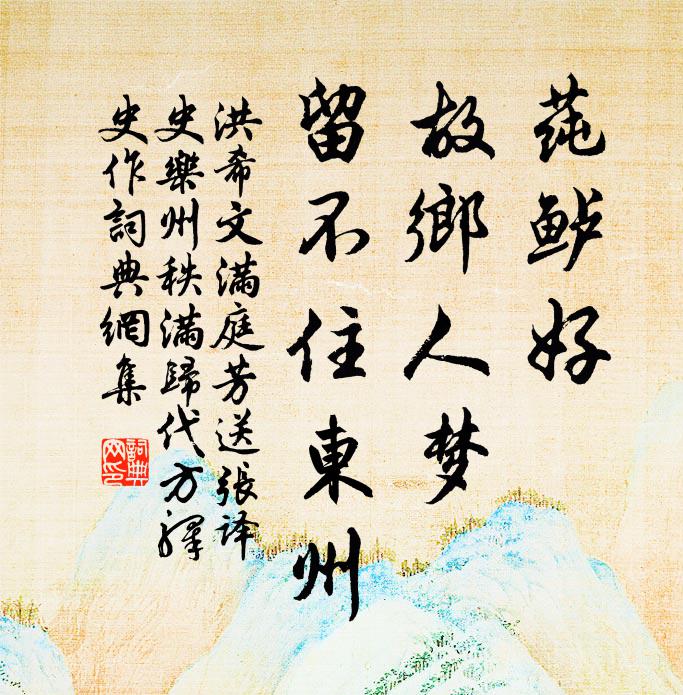 莼鲈好
故鄉人梦
留不住東州
洪希文满庭芳送張译
史樂州秩滿歸代方譯
史作詞典網集
詞典网印